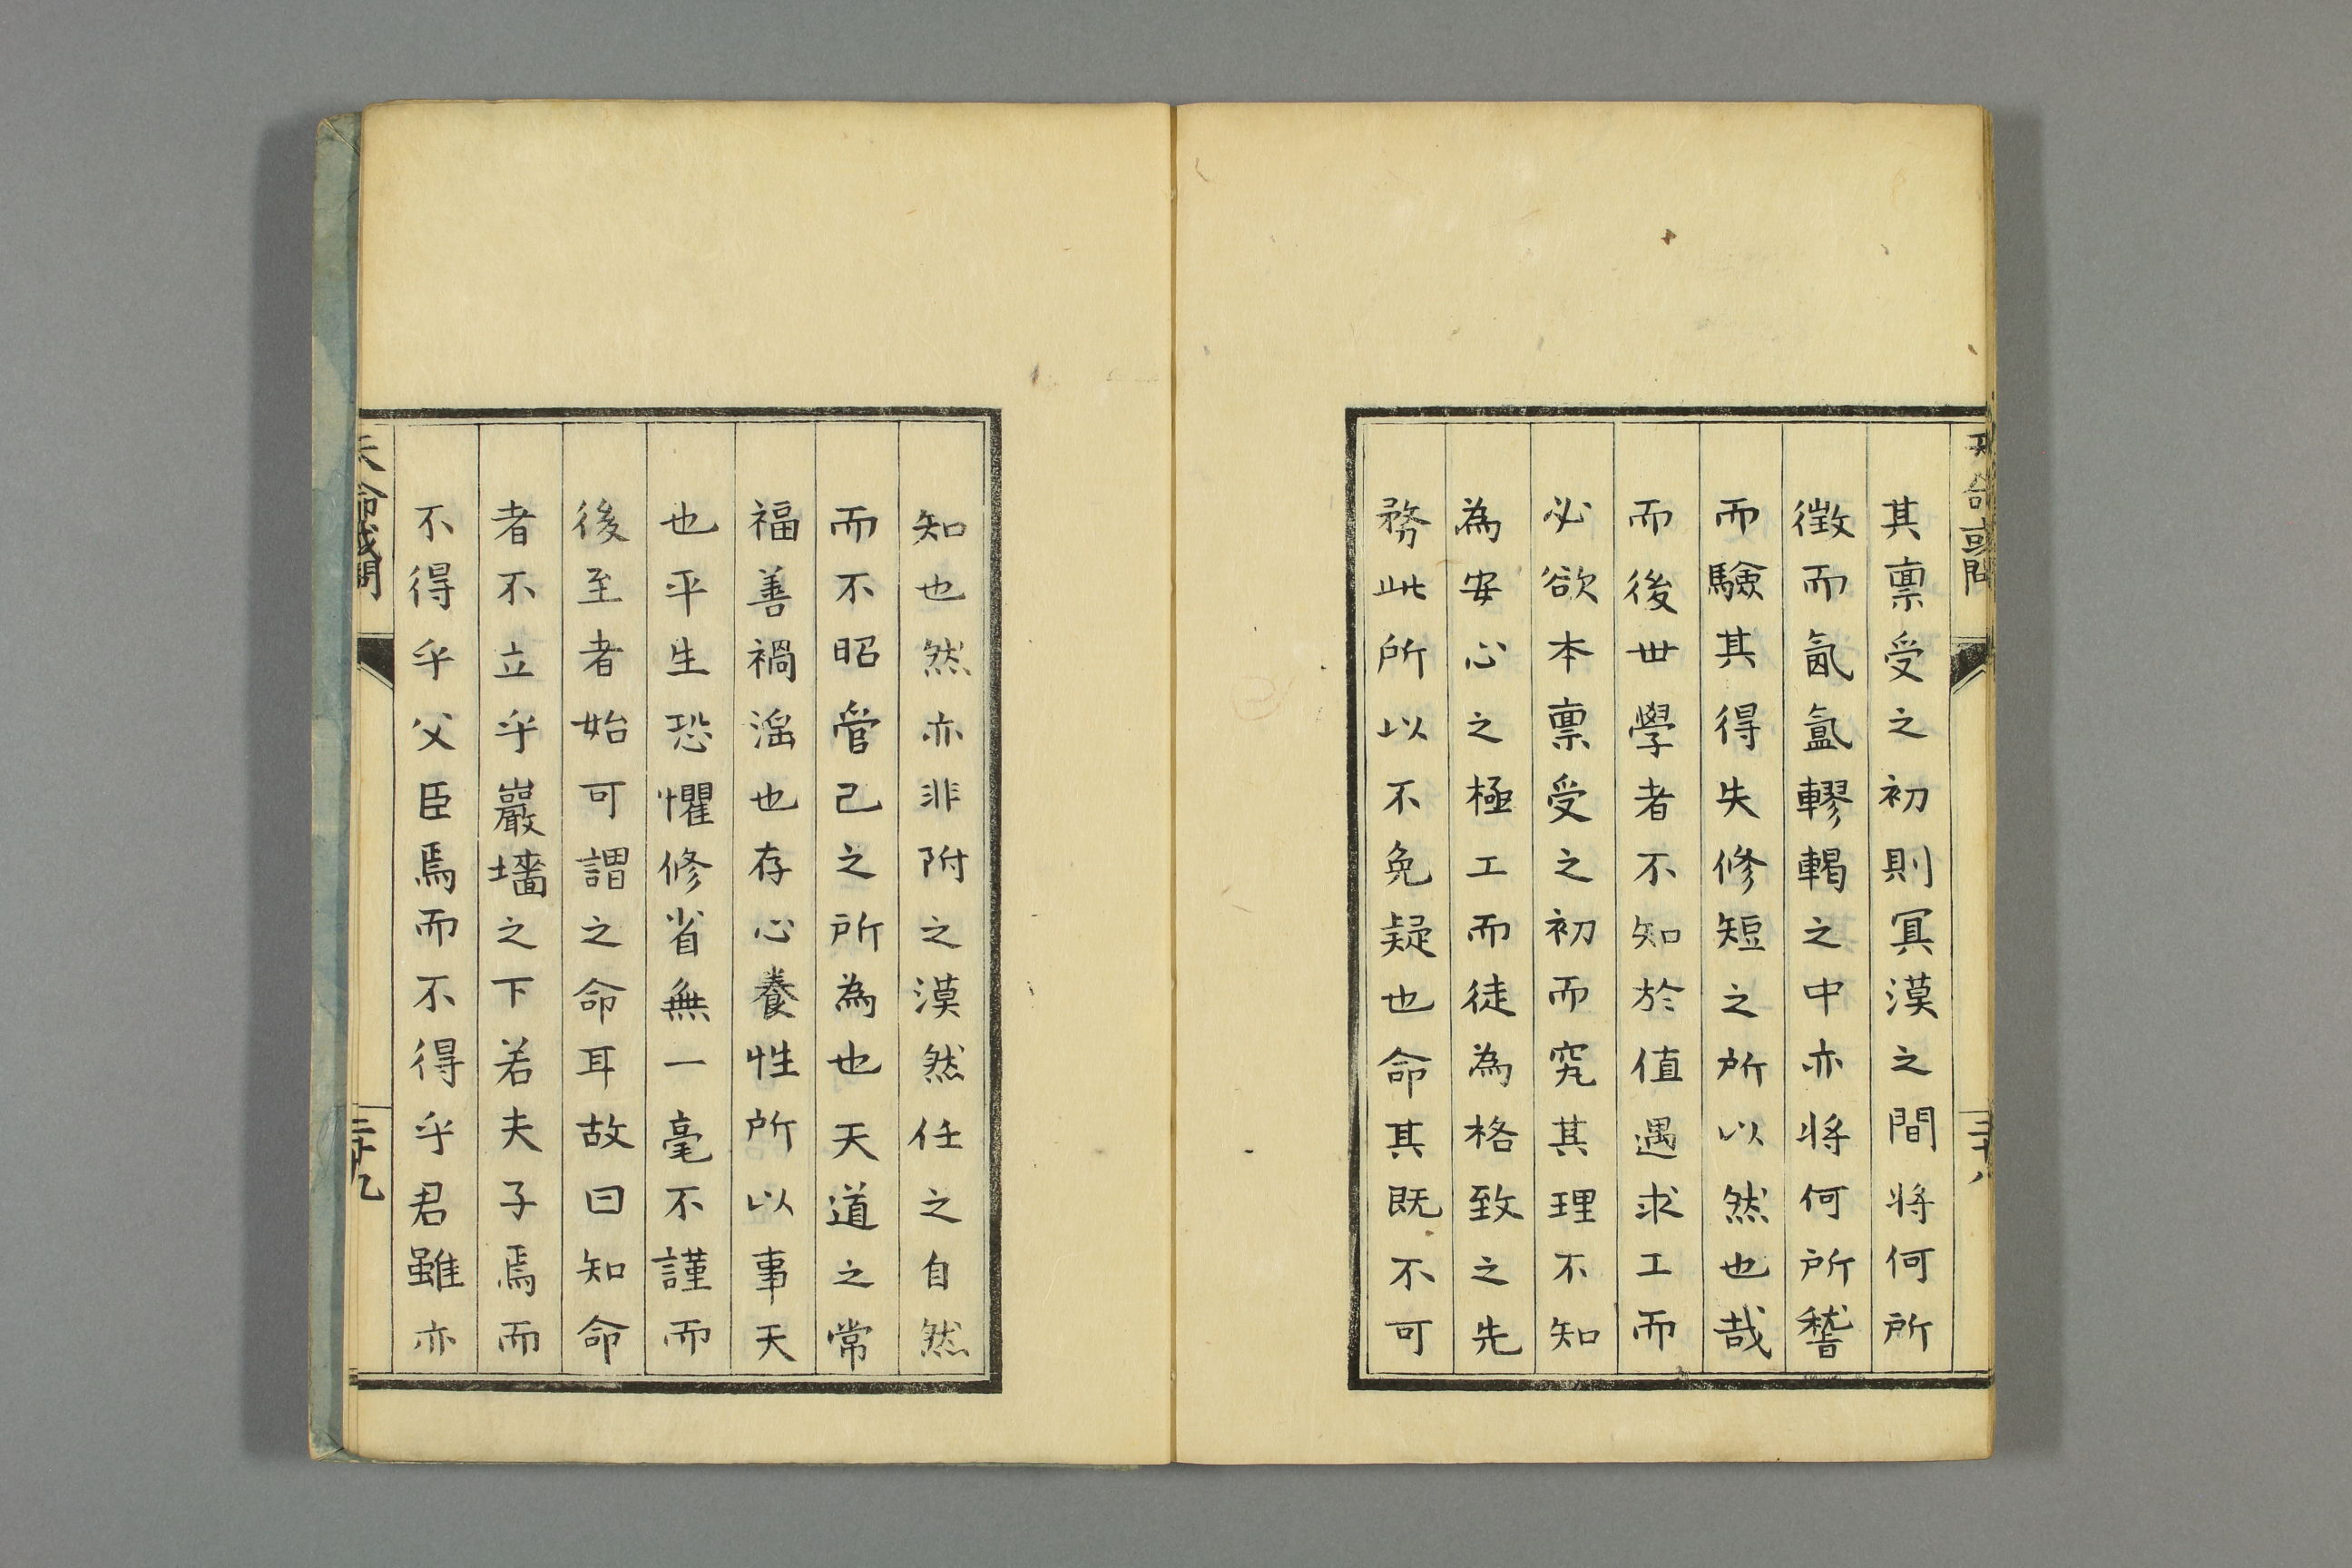 天命或問
三十八
其禀受之初則冥漠之間将何所
徵而氤氳轇輵之中亦将何所稽
而驗其得失修短之所以然也哉
而後世學者不知於值遇求工而
必欲本禀受之初而究其理不知
為安心之極工而徒為格致之先
務此所以不免疑也命其既不可
知也然亦非附之漠然任之自然
而不昭管己之所為也天道之常
福善禍淫也存心養性所以事天
也平生恐懼修省無一毫不謹而
後至者始可謂之命耳故曰知命
者不立乎巖墻之下若夫子焉而
不得乎父臣焉而不得乎君雖亦
天命或問
三十九